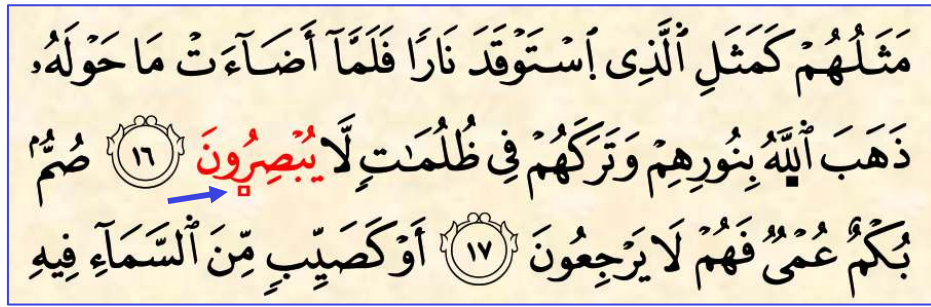 مَثَلُهُمْ كَمَثَلِ ٱلَّذِى ٱِسْتَوْقَدَ نَارٗا فَلَمَّآ أَضَآءَتْ مَا حَوْلَهُۥ
ذَهَبَ ٱللَّهُ بِنُورِهِمْ وَتَرَكَهُمْ فِى ظُلُمَٰتٖ لَّا يُبْصِرُونَ ١٦ صُمُّۢ
بُكْمٌ عُمْىٞ فَهُمْ لَا يَرْجِعُونَ ١٧ أَوْ كَصَيِّبٖ مِّنَ ٱلسَّمَآءِ فِيهِ